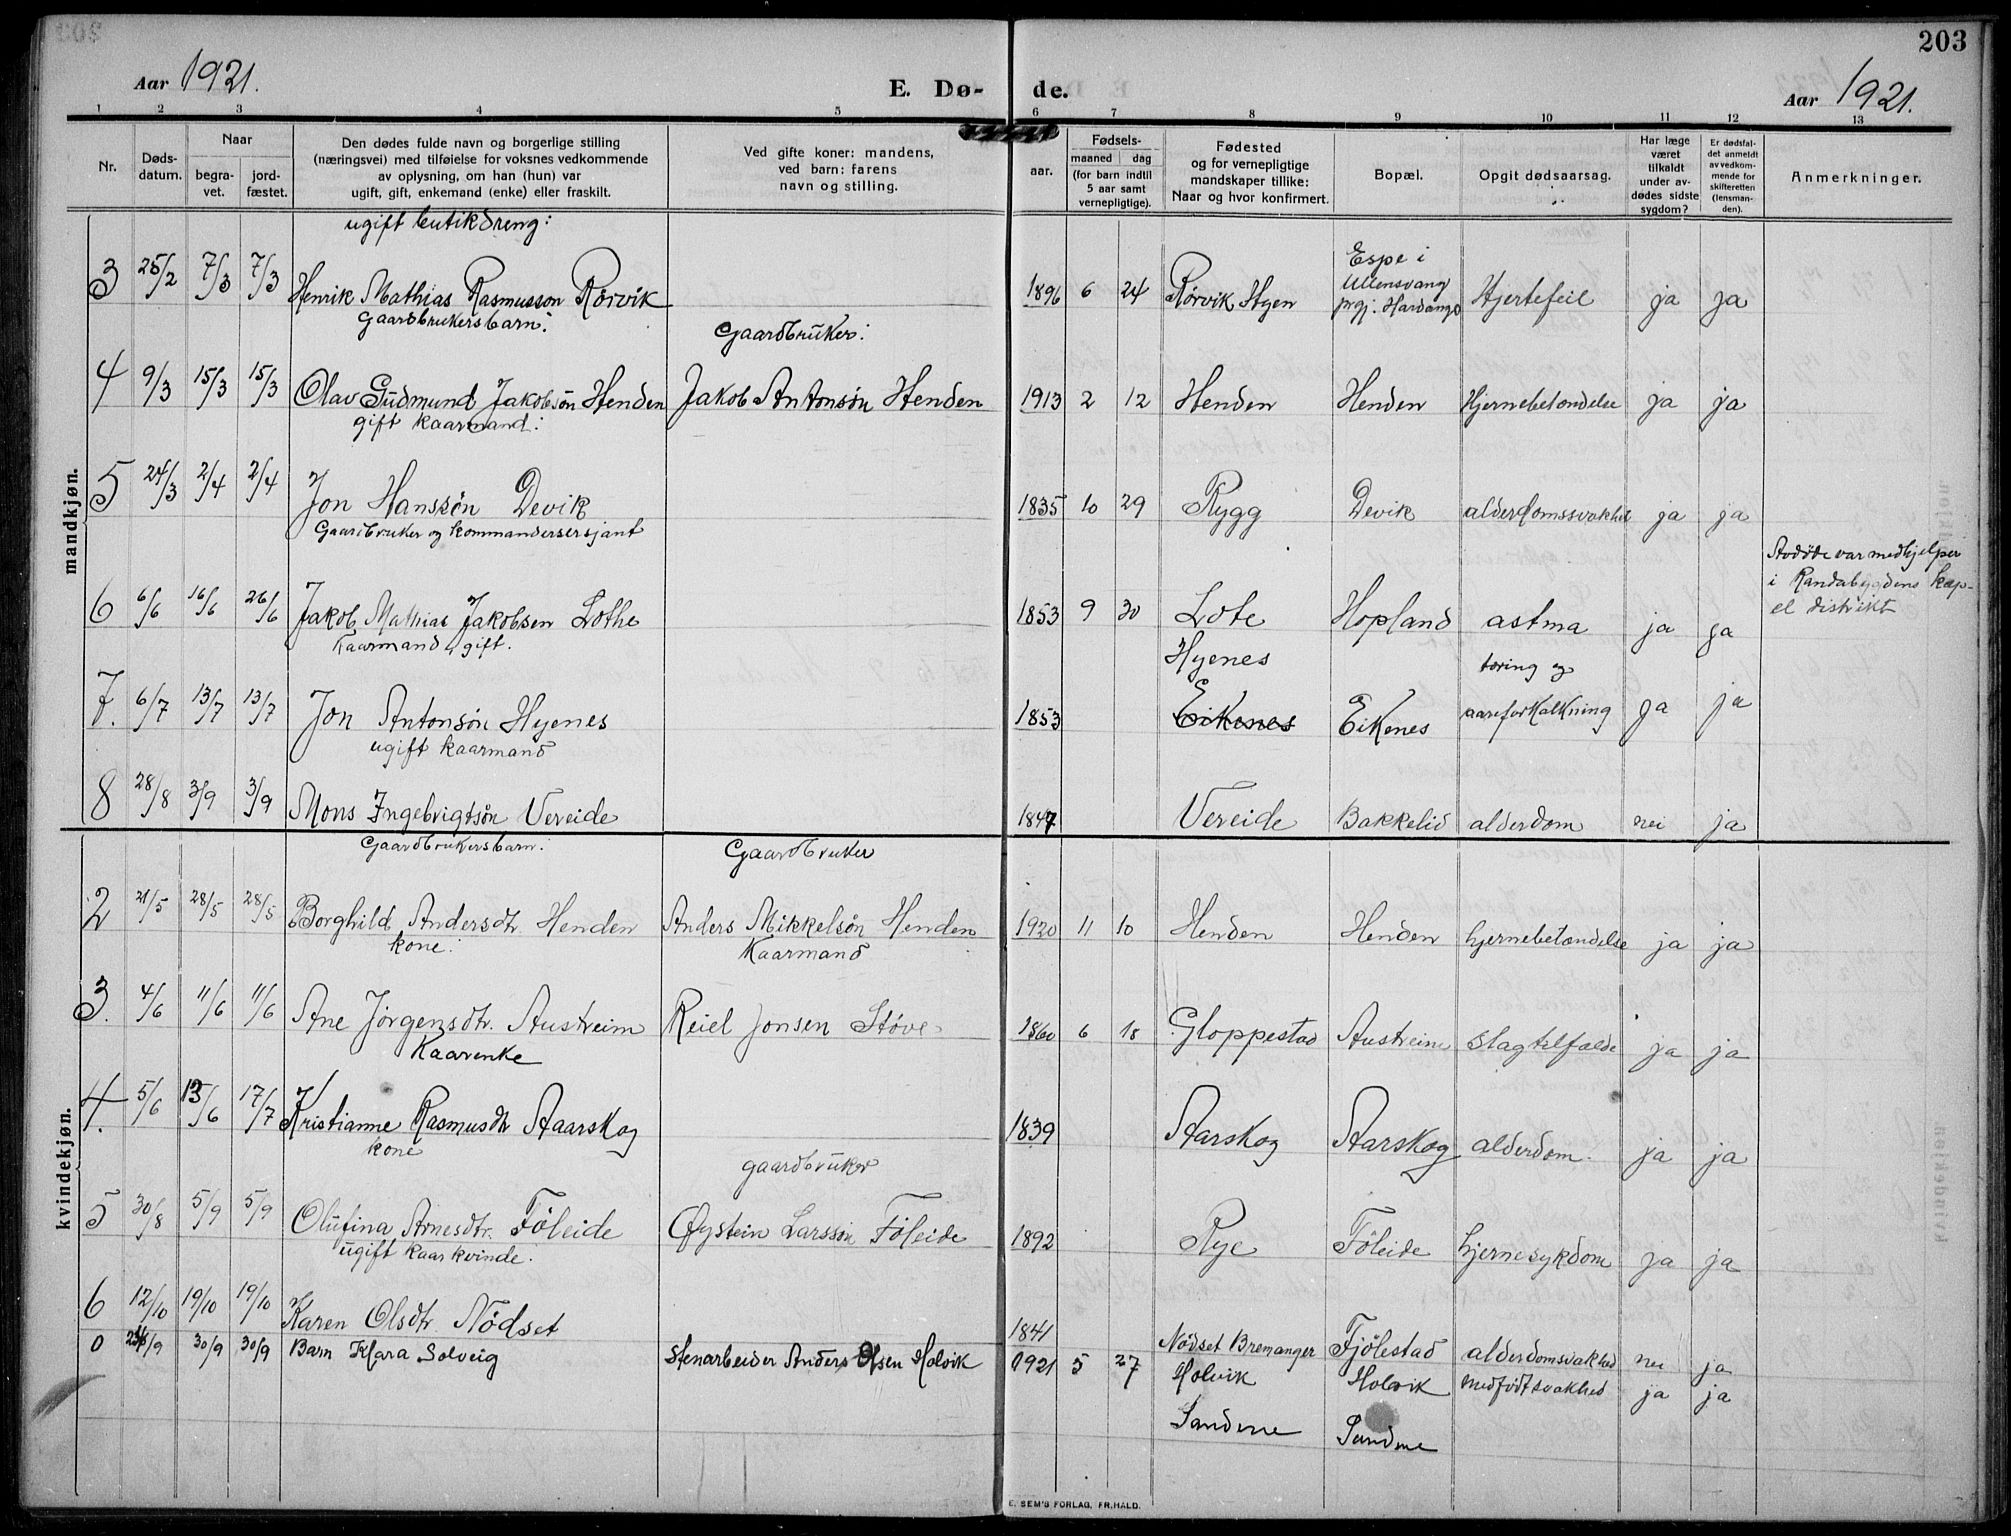 203
Aar 1921.
E. Dø-
de.
Aar 1921.
1 2 3 4 5 6 7 8 9 10 11 12 13
Nr.
Døds-
datum.
Naar
begra-
vet.
jord-
fæstet.
Den dødes fulde navn og borgerlige stilling
(næringsvei) med tilføielse for voksnes vedkommende
av oplysning, om han (hun) var
ugift, gift, enkemand (enke) eller fraskilt.
Ved gifte koner: mandens,
ved barn: farens
navn og stilling.
aar.
Fødsels-
maaned dag
(for barn indtil
5 aar samt
vernepligtige).
Fødested
og for vernepligtige
mandskaper tillike:
Naar og hvor konfirmert.
Bopæl.
Opgit dødsaarsag.
Har læge
været
tilkaldt
under av-
dødes sidste
sygdom?
Er dødsfal-
det anmeldt
av vedkom-
mende for
skifteretten
(lensman-
den).
Anmerkninger.
mandkjøn.
ugift butikdreng:
3 25/2 7/3 7/3 Henrik Mathias Rasmusson Rørvik 1896 6 24 Rørvik Hyen Espe i
Ullensvang
prgj. Hardanger Hjertefeil ja ja
Gaardbrukersbarn: Gaardbruker:
4 9/3 15/3 15/3 Olav Gudmund Jakobsøn Henden Jakob Antonsøn Henden 1913 2 12 Henden Henden Hjernebetændelse ja ja
gift kaarmand:
5 24/3 2/4 2/4 Jon Hanssøn Devik 1835 10 29 Rygg Devik alderdomssvakhet ja ja
Gaardbruker og kommandersersjant
6 6/6 16/6 26/6 Jakob Mathias Jakobsen Lothe 1853 9 30 Lote Hopland astma ja ja
Avdøde var medhjelper
i Randabygdens kap-
el distrikt
Kaarmand, gift. Hyenes tæring og
7. 6/7 13/7 13/7 Jon Antonsøn Hyenes 1853 Eikenes Eikenes aareforkalkning ja ja
ugift kaarmand
8 28/8 3/9 3/9 Mons Ingebrigtsøn Vereide 1847 Vereide Bakkelid alderdom nei ja
kvindekjøn.
Gaardbrukersbarn: Gaardbruker
2 21/5 28/5 28/5 Borghild Andersdtr. Henden Anders Mikkelsøn Henden 1920 11 10 Henden Henden hjernebetændelse ja ja
kone: Kaarmand
3. 4/6 11/6 11/6 Ane Jørgensdtr. Austreim Reiel Jonsen Støve 1860 6 18 Gloppestad Austreim slagtilfælde ja ja
Kaarenke
4. 5/6 13/6 17/7 Kristianne Rasmusdtr Aaarskog 1839 Aarskog Aarskog alderdom. ja ja
kone gaardbruker
5 30/8 5/9 5/9 Olufina Arnesdtr. Føleide Øystein Larssøn Føleide 1892 Rye Føleide hjernesykdom ja ja
ugift kaarkvinde.
6 12/10 19/10 19/10 Karen Olsdtr. Nødset 1841 Nødset Bremanger Fjølestad alderdomsvakhed nei ja
0 24/9 30/9 30/9 Barn Klara Solveig Stenarbeider Anders Olsen Holvik 1921 5 27 Holvik Holvik medfødt svakhed ja ja
Sandene Sandene
E. SEM'S FORLAG, FR.HALD.